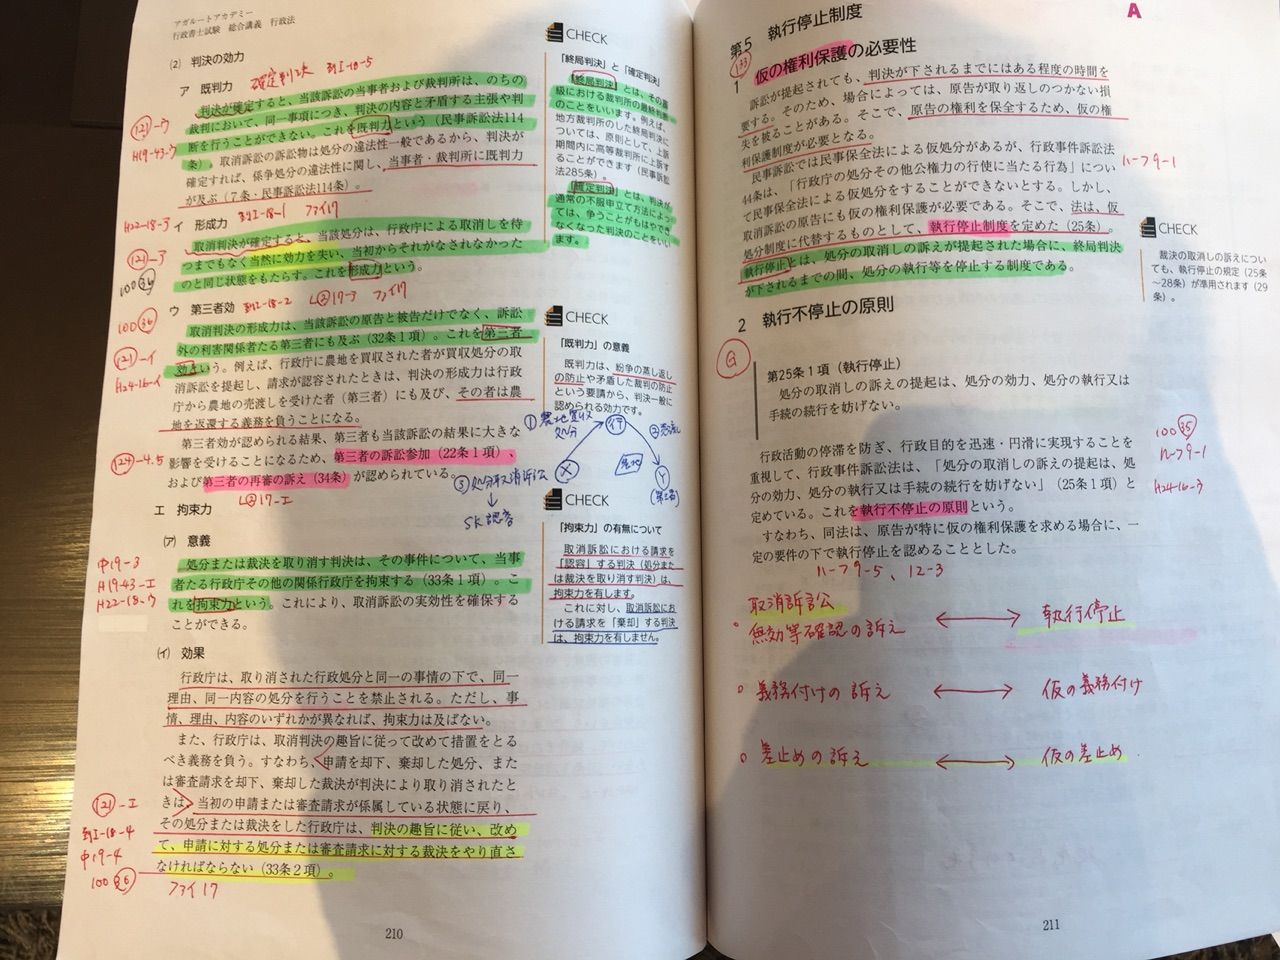 アガルートアカデミー
行政書士試験 総合講義 行政法
⑵ 判決の効力
ア 既判力 確定判決 到I-18-5
判決が確定すると、当該訴訟の当事者および裁判所は、のちの
裁判において、同一事項につき、判決の内容と矛盾する主張や判
断を行うことができない。これを既判力という（民事訴訟法114
条）。取消訴訟の訴訟物は処分の違法性一般であるから、判決が
確定すれば、係争処分の違法性に関し、当事者・裁判所に既判力
が及ぶ（7条・民事訴訟法114条）。
(121)-ウ
H19-43-ウ
イ 形成力 到I-18-1 ファイ17
取消判決が確定すると、当該処分は、行政庁による取消しを待
つまでもなく当然に効力を失い、当初からそれがなされなかった
のと同じ状態をもたらす。これを形成力という。
H22-18-3
(121)-3
100(36)
ウ 第三者効 到I-18-2 L②17-3 ファイ17
取消判決の形成力は、当該訴訟の原告と被告だけでなく、訴訟
外の利害関係者たる第三者にも及ぶ（32条1項）。これを第三者
効という。例えば、行政庁に農地を買収された者が買収処分の取
消訴訟を提起し、請求が認容されたときは、判決の形成力は行政
庁から農地の売渡しを受けた者（第三者）にも及び、その者は農
地を返還する義務を負うことになる。
第三者効が認められる結果、第三者も当該訴訟の結果に大きな
影響を受けることになるため、第三者の訴訟参加（22条1項）、
および第三者の再審の訴え（34条）が認められている。
100(36)
(121)-イ
H24-16-イ
(124)-4.5
L②17-エ
エ 拘束力
㋐ 意義
処分または裁決を取り消す判決は、その事件について、当事
者たる行政庁その他の関係行政庁を拘束する（33条1項）。こ
れを拘束力という。これにより、取消訴訟の実効性を確保する
ことができる。
中19-3
H19-43-エ
H22-18-ウ
㋑ 効果
行政庁は、取り消された行政処分と同一の事情の下で、同一
理由、同一内容の処分を行うことを禁止される。ただし、事
情、理由、内容のいずれかが異なれば、拘束力は及ばない。
また、行政庁は、取消判決の趣旨に従って改めて措置をとる
べき義務を負う。すなわち、申請を却下、棄却した処分、また
は審査請求を却下、棄却した裁決が判決により取り消されたと
きは、当初の申請または審査請求が係属している状態に戻り、
その処分または裁決をした行政庁は、判決の趣旨に従い、改め
て、申請に対する処分または審査請求に対する裁決をやり直さ
なければならない（33条2項）。
(121)-エ
到I-18-4
中19-4
100(36)
ファイ17
CHECK
「終局判決」と「確定判決」
「終局判決」とは、その審
級における裁判所の最終判断
のことをいいます。例えば、
地方裁判所のした終局判決に
ついては、原則として、上訴
期間内に高等裁判所に上訴す
ることができます（民事訴訟
法285条）。
「確定判決」とは、判決が
通常の不服申立て方法によっ
ては、争うことがもはやでき
なくなった判決のことをいい
ます。
CHECK
「既判力」の意義
既判力は、紛争の蒸し返し
の防止や矛盾した裁判の防止
という要請から、判決一般に
認められる効力です。
①農地買収
処分
行
②売渡し
農地
X
Y
(第三者)
③処分取消訴訟
↓
SK認容
CHECK
「拘束力」の有無について
取消訴訟における請求を
「認容」する判決（処分また
は裁決を取り消す判決）は、
拘束力を有します。
これに対し、取消訴訟にお
ける請求を「棄却」する判決
は、拘束力を有しません。
210
A
第5 執行停止制度
(133)
1 仮の権利保護の必要性
訴訟が提起されても、判決が下されるまでにはある程度の時間を
要する。そのため、場合によっては、原告が取り返しのつかない損
失を被ることがある。そこで、原告の権利を保全するため、仮の権
利保護制度が必要となる。
民事訴訟では民事保全法による仮処分があるが、行政事件訴訟法
44条は、「行政庁の処分その他公権力の行使に当たる行為」につい
て民事保全法による仮処分をすることができないとする。しかし、
取消訴訟の原告にも仮の権利保護が必要である。そこで、法は、仮
処分制度に代替するものとして、執行停止制度を定めた（25条）。
執行停止とは、処分の取消しの訴えが提起された場合に、終局判決
が下されるまでの間、処分の執行等を停止する制度である。
ハ-79-1
CHECK
裁決の取消しの訴えについ
ても、執行停止の規定（25条
～28条）が準用されます（29
条）。
2 執行不停止の原則
G
第25条1項（執行停止）
処分の取消しの訴えの提起は、処分の効力、処分の執行又は
手続の続行を妨げない。
行政活動の停滞を防ぎ、行政目的を迅速・円滑に実現することを
重視して、行政事件訴訟法は、「処分の取消しの訴えの提起は、処
分の効力、処分の執行又は手続の続行を妨げない」（25条1項）と
定めている。これを執行不停止の原則という。
すなわち、同法は、原告が特に仮の権利保護を求める場合に、一
定の要件の下で執行停止を認めることとした。
100(35)
ハ-79-1
H24-16-3
ハ-79-5、12-3
取消訴訟
○無効等確認の訴え ⟷ 執行停止
○義務付けの訴え ⟷ 仮の義務付け
○差止めの訴え ⟷ 仮の差止め
211